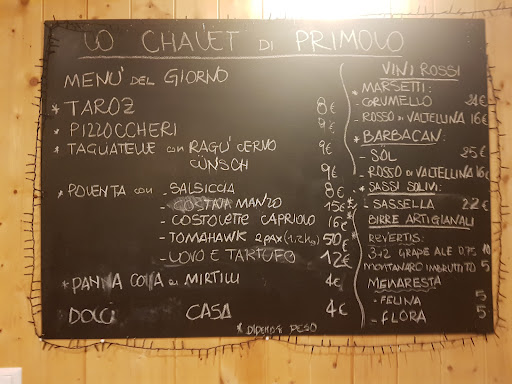 LO CHALET DI PRIMOLO
MENU' DEL GIORNO
* TAROZ 8€
* PIZZOCCHERI 9€
* TAGLIATELLE con RAGU' CERVO 9€
CÜNSCH 9€
* POLENTA con - SALSICCIA 8€
- COSTINA MANZO 15€ *
- COSTOLETTE CAPRIOLO 16€ *
- TOMAHAWK 2pax (1.2kg) 50€
- UOVO E TARTUFO 12€
* PANNA COTTA ai MIRTILLI 4€
DOLCI CASA 4€
* DIPENDE PESO
VINI ROSSI
* MARSETTI:
- GRUMELLO 24€
- ROSSO DI VALTELLINA 16€
* BARBACAN:
- SÖL 25€
- ROSSO DI VALTELLINA 16€
* SASSI SOLIVI:
- SASSELLA 22€
BIRRE ARTIGIANALI
REVERTIS:
3+2 GRAPE ALE 0.75 10
MONTANARO IMBRUTTITO 5
MENARESTA
- FELINA 5
- FLORA 5